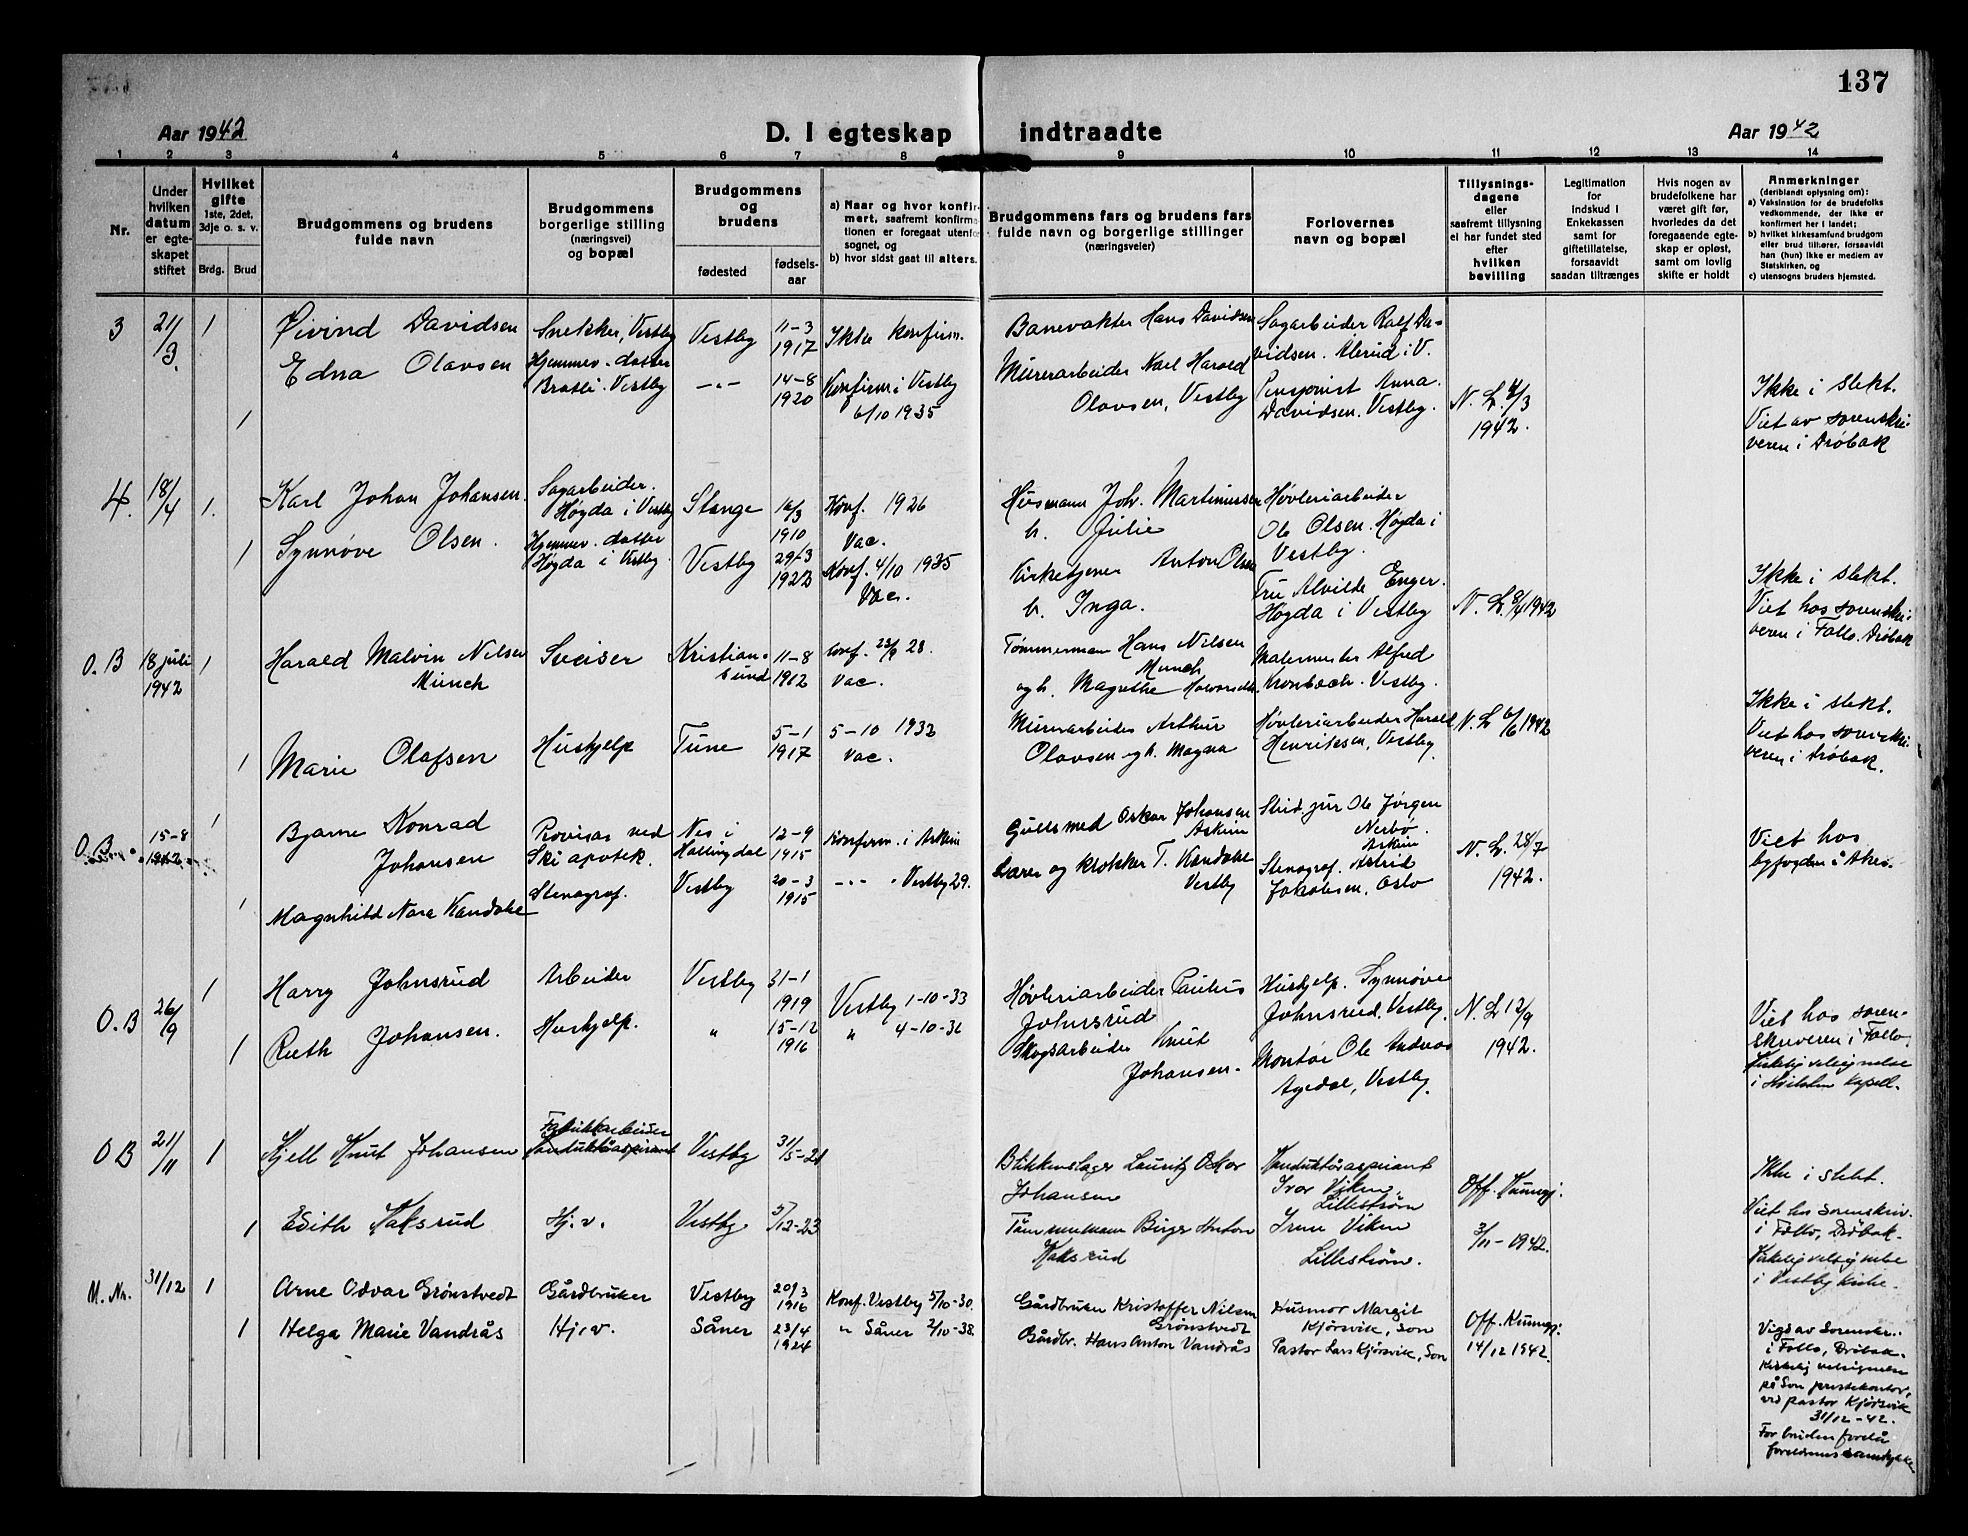 137
Aar 1942
D. I egteskap indtraadte
Aar 1942
1 2 3 4 5 6 7 8 9 10 11 12 13 14
Nr.
Under
hvilken
datum
er egte-
skapet
stiftet
Hvilket
gifte
1ste, 2det,
3dje o. s. v.
Brdg. Brud
Brudgommens og brudens
fulde navn
Brudgommens
borgerlige stilling
(næringsvei)
og bopæl
Brudgommens
og
brudens
fødested
fødsels-
aar
a) Naar og hvor konfir-
mert, saafremt konfirma-
tionen er foregaat utenfor
sognet, og
b) hvor sidst gaat til alters.
Brudgommens fars og brudens fars
fulde navn og borgerlige stillinger
(næringsveier)
Forlovernes
navn og bopæl
Tillysnings-
dagene
eller
saafremt tillysning
ei har fundet sted
efter
hvilken
bevilling
Legitimation
for
Indskud i
Enkekassen
samt for
giftetillatelse,
forsaavidt
saadan tiltrænges
Hvis nogen av
brudefolkene har
været gift før,
hvorledes da det
foregaaende egte-
skap er opløst,
samt om lovlig
skifte er holdt
Anmerkninger
(deriblandt oplysning om):
a) Vaksinstion for de brudefolks
vedkommende, der ikke er
konfirmert her i landet;
b) hvilket kirkesamfund brudgom
eller brud tilhører, forsaavidt
han (hun) ikke er medlem av
Statskirken, og
c) utensogns bruders hjemsted.
3
21/3.
1
Øivind Davidsen
Snekker, Vestby
Vestby
11-3
1917
Ikke konfirm.
Banevakter Hans Davidsen
Sagarbeider Ralf Da-
vidsen. Ålerud i V.
1
Edna Olavsen
Hjemmev. datter
Bratli. Vestby
-"-
14-8
1920
Konfirm i Vestby
6/10 1935
Murerarbeider Karl Harald
Olavsen, Vestby
Pensjonist Anna
Davidsen. Vestby.
N. L. 4/3
1942.
Ikke i slekt.
Viet av sorenskri-
veren i Drøbak
4.
18/4
1.
Karl Johan Johansen.
Sagarbeider.
Høgda i Vestby
Stange
16/3
1910
Konf. 1926
Vac.
Husmann Joh. Martinussen
h. Julie
Høvleriarbeider
Ole Olsen. Høgda i
Vestby.
1
Synnøve Olsen.
Hjemmev. datter
Høgda i Vestby
Vestby
29/3
192
Konf. 4/10 1935
Vac.
Kirketjener Anton Olsen
h. Inga.
Fru Alvilde Enger.
Høgda i Vestby
N. L. 8/4 1942
Ikke i slekt.
Viet hos sorenskri-
veren i Follo. Drøbak
O. B
18 juli
1942
1
Harald Malvin Nilsen
Munch
Sveiser
Kristian-
sund
11-8
1912
konf. 23/9 28.
Vac.
Tømmermann Hans Nilsen
Munch
og h. Magrethe
Malermester Alfred
Kronbach. Vestby.
1
Marie Olafsen
Hushjelp
Tune
5-1
1917
5-10 1932
Vac.
Murerarbeider Arthur
Olavsen og h. Magna
Høvleriarbeider Harald
Henriksen, Vestby.
N. L 6/6 1942
Ikke i slekt.
Viet hos sorenskri-
veren i Drøbak.
O. B.
15-8
1942
1
Bjarne Konrad
Johansen
Provisor ved
Ski apotek.
Nes i
Hallingdal
12-9
1915
Konferm. i Askim
Gullsmed Oskar Johansen
Askim
Stud. jur Ole Jørgen
Nerbø.
Askim
1
Magnhild Nora Kandahl
Stenograf.
Vestby
20-3
1915
-"- Vestby 29.
Lærer og klokker T. Kandahl
Vestby
Stenograf. Astrid
Jakobsen, Oslo
N. L. 28/7
1942.
Viet hos
byfogden i Aker.
O. B
26/9
1
Harry Johnsrud
Arbeider
Vestby
31-1
1919
Vestby 1-10-33
Høvleriarbeider Paulus
Johnsrud
Hushjelp. Synnøve
Johnsrud, Vestby.
1
Ruth Johansen.
Hushjelp.
"
15-12
1916
" 4-10-31
Skogsarbeider Knut
Johansen.
Montør Ole Andreas
Agedal, Vestby.
N. L 12/9
1942.
Viet hos soren-
skriveren i Follo,
Kirkelig velsignelse
i Hvitsten kapell.
O B
21/11
1
Kjell Knut Johansen
Fabrikkarbeider
Konduktøraspirant
Vestby
31/5-21
Blikkenslager Lauritz Oskar
Johansen
Konduktøraspirant
Ivar Viken,
Lillestrøm
1
Edith Haksrud
Hj. v.
Vestby
5/12-23
Tømmermann Birger Anton
Haksrud
Irene Viken
Lillestrøm.
Off. Kunngj.
3/11-1942.
Ikke i slekt.
Viet hos sorenskriv.
i Follo, Drøbak.
Kirkelig velsignelse
i Vestby kirke.
M. Nr.
31/12
1
Arne Odvar Grønstvedt
Gårdbruker
Vestby
20/3
1916
Konf. Vestby 5/10-30.
Gårdbruker Kristoffer Nilsen
Grønstvedt
Husmor Margit
Kjørsvik, Son
1
Helga Marie Vandrås
Hj. v.
Såner
23/4
1924
" Såner 2/10-38.
Gårdbr. Hans Anton Vandrås
Pastor Lars Kjørsvik, Son
Off. Kunngj.
14/12 1942.
Vigd av Sorenskr.
i Follo, Drøbak.
Kirkelig velsignelse
på Son prestekontor,
ved pastor Kjørsvik
31/12-42.
For bruden forelå
foreldrenes samtykke